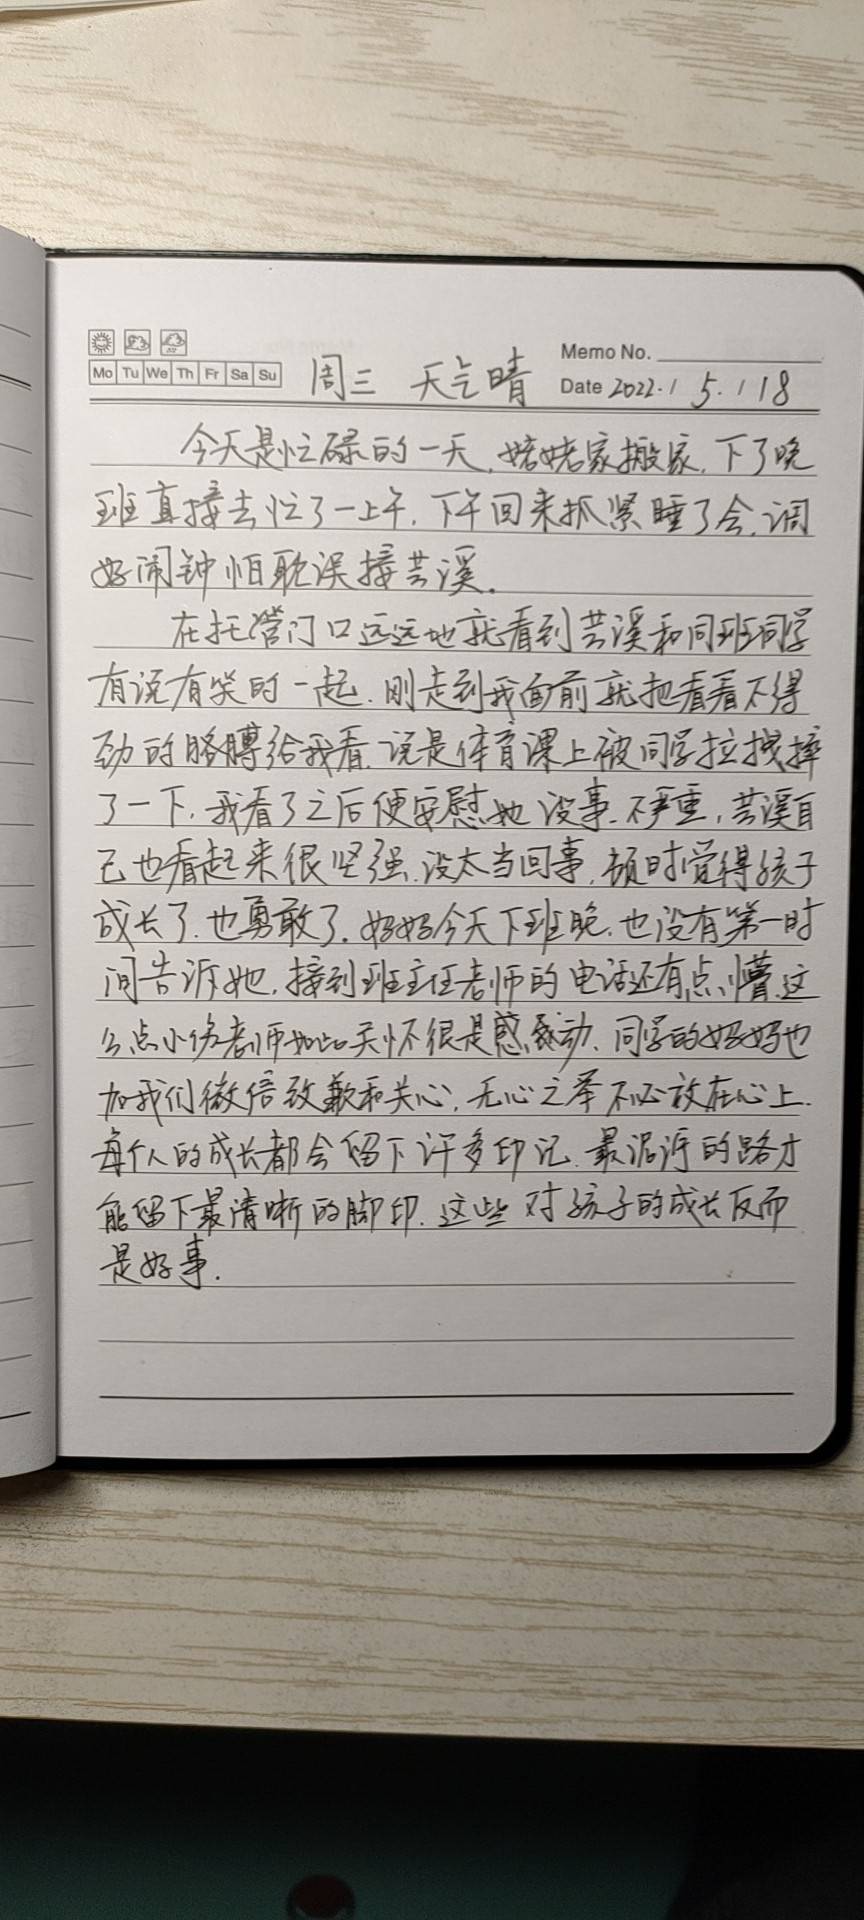 Memo No.
Mo Tu We Th Fr Sa Su 周三 天气晴 Date 2022.5.18
今天是忙碌的一天,姥姥家搬家,下了晚
班直接去忙了一上午,下午回来抓紧睡了会,调
好闹钟怕耽误接芸溪。
在托管门口远远地就看到芸溪和同班同学
有说有笑的一起,刚走到我面前就把看看不得
劲的胳膊给我看,说是体育课上被同学拉拽摔
了一下,我看了之后便安慰她没事,不严重,芸溪自
己也看起来很坚强,没太当回事,顿时觉得孩子
成长了,也勇敢了。妈妈今天下班晚,也没有第一时
间告诉她,接到班主任老师的电话还有点懵,这
么点小伤老师如此关怀很是感动,同学的妈妈也
加我们微信致歉和关心,无心之举不必放在心上,
每个人的成长都会留下许多印记,最泥泞的路才
能留下最清晰的脚印,这些对孩子的成长反而
是好事。